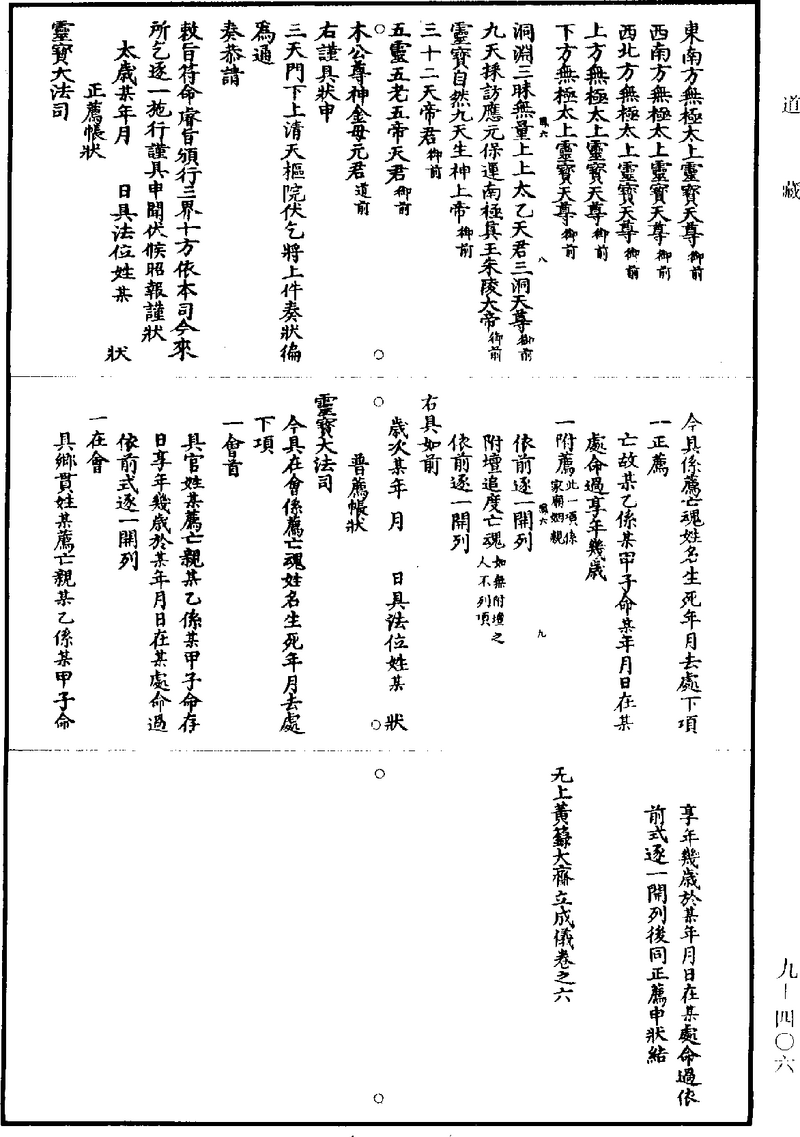 道藏
九—四〇六
東南方無極太上靈寶天尊御前
西南方無極太上靈寶天尊御前
西北方無極太上靈寶天尊御前
上方無極太上靈寶天尊御前
下方無極太上靈寶天尊御前
洞淵三昧無量上上太乙天君三洞天尊御前
九天採訪應元保運南極真王朱陵大帝御前
靈寶自然九天生神上帝御前
三十二天帝君御前
五靈五老五帝天君御前
木公尊神金母元君道前
右謹具狀申
三天門下上清天樞院伏乞將上件奏狀徧
爲通
奏恭請
敕旨符命睿旨頒行三界十方依本司今來
所乞逐一施行謹具申聞伏候昭報謹狀
太歲某年月 日具法位姓某 狀
正薦帳狀
靈寶大法司
今具係薦亡魂姓名生死年月去處下項
一正薦
亡故某乙係某甲子命某年月日在某
處命過享年幾歲
一附薦此一項係家廟姻親
依前逐一開列
附壇追度亡魂如無附壇之人不列項
依前逐一開列
右具如前
歲次某年 月 日具法位姓某 狀
普薦帳狀
靈寶大法司
今具在會係薦亡魂姓名生死年月去處
下項
一會首
具官姓某薦亡親某乙係某甲子命存
日享年幾歲於某年月日在某處命過
依前式逐一開列
一在會
具鄉貫姓某薦亡親某乙係某甲子命
享年幾歲於某年月日在某處命過依
前式逐一開列後同正薦申狀結
无上黃籙大齋立成儀卷之六